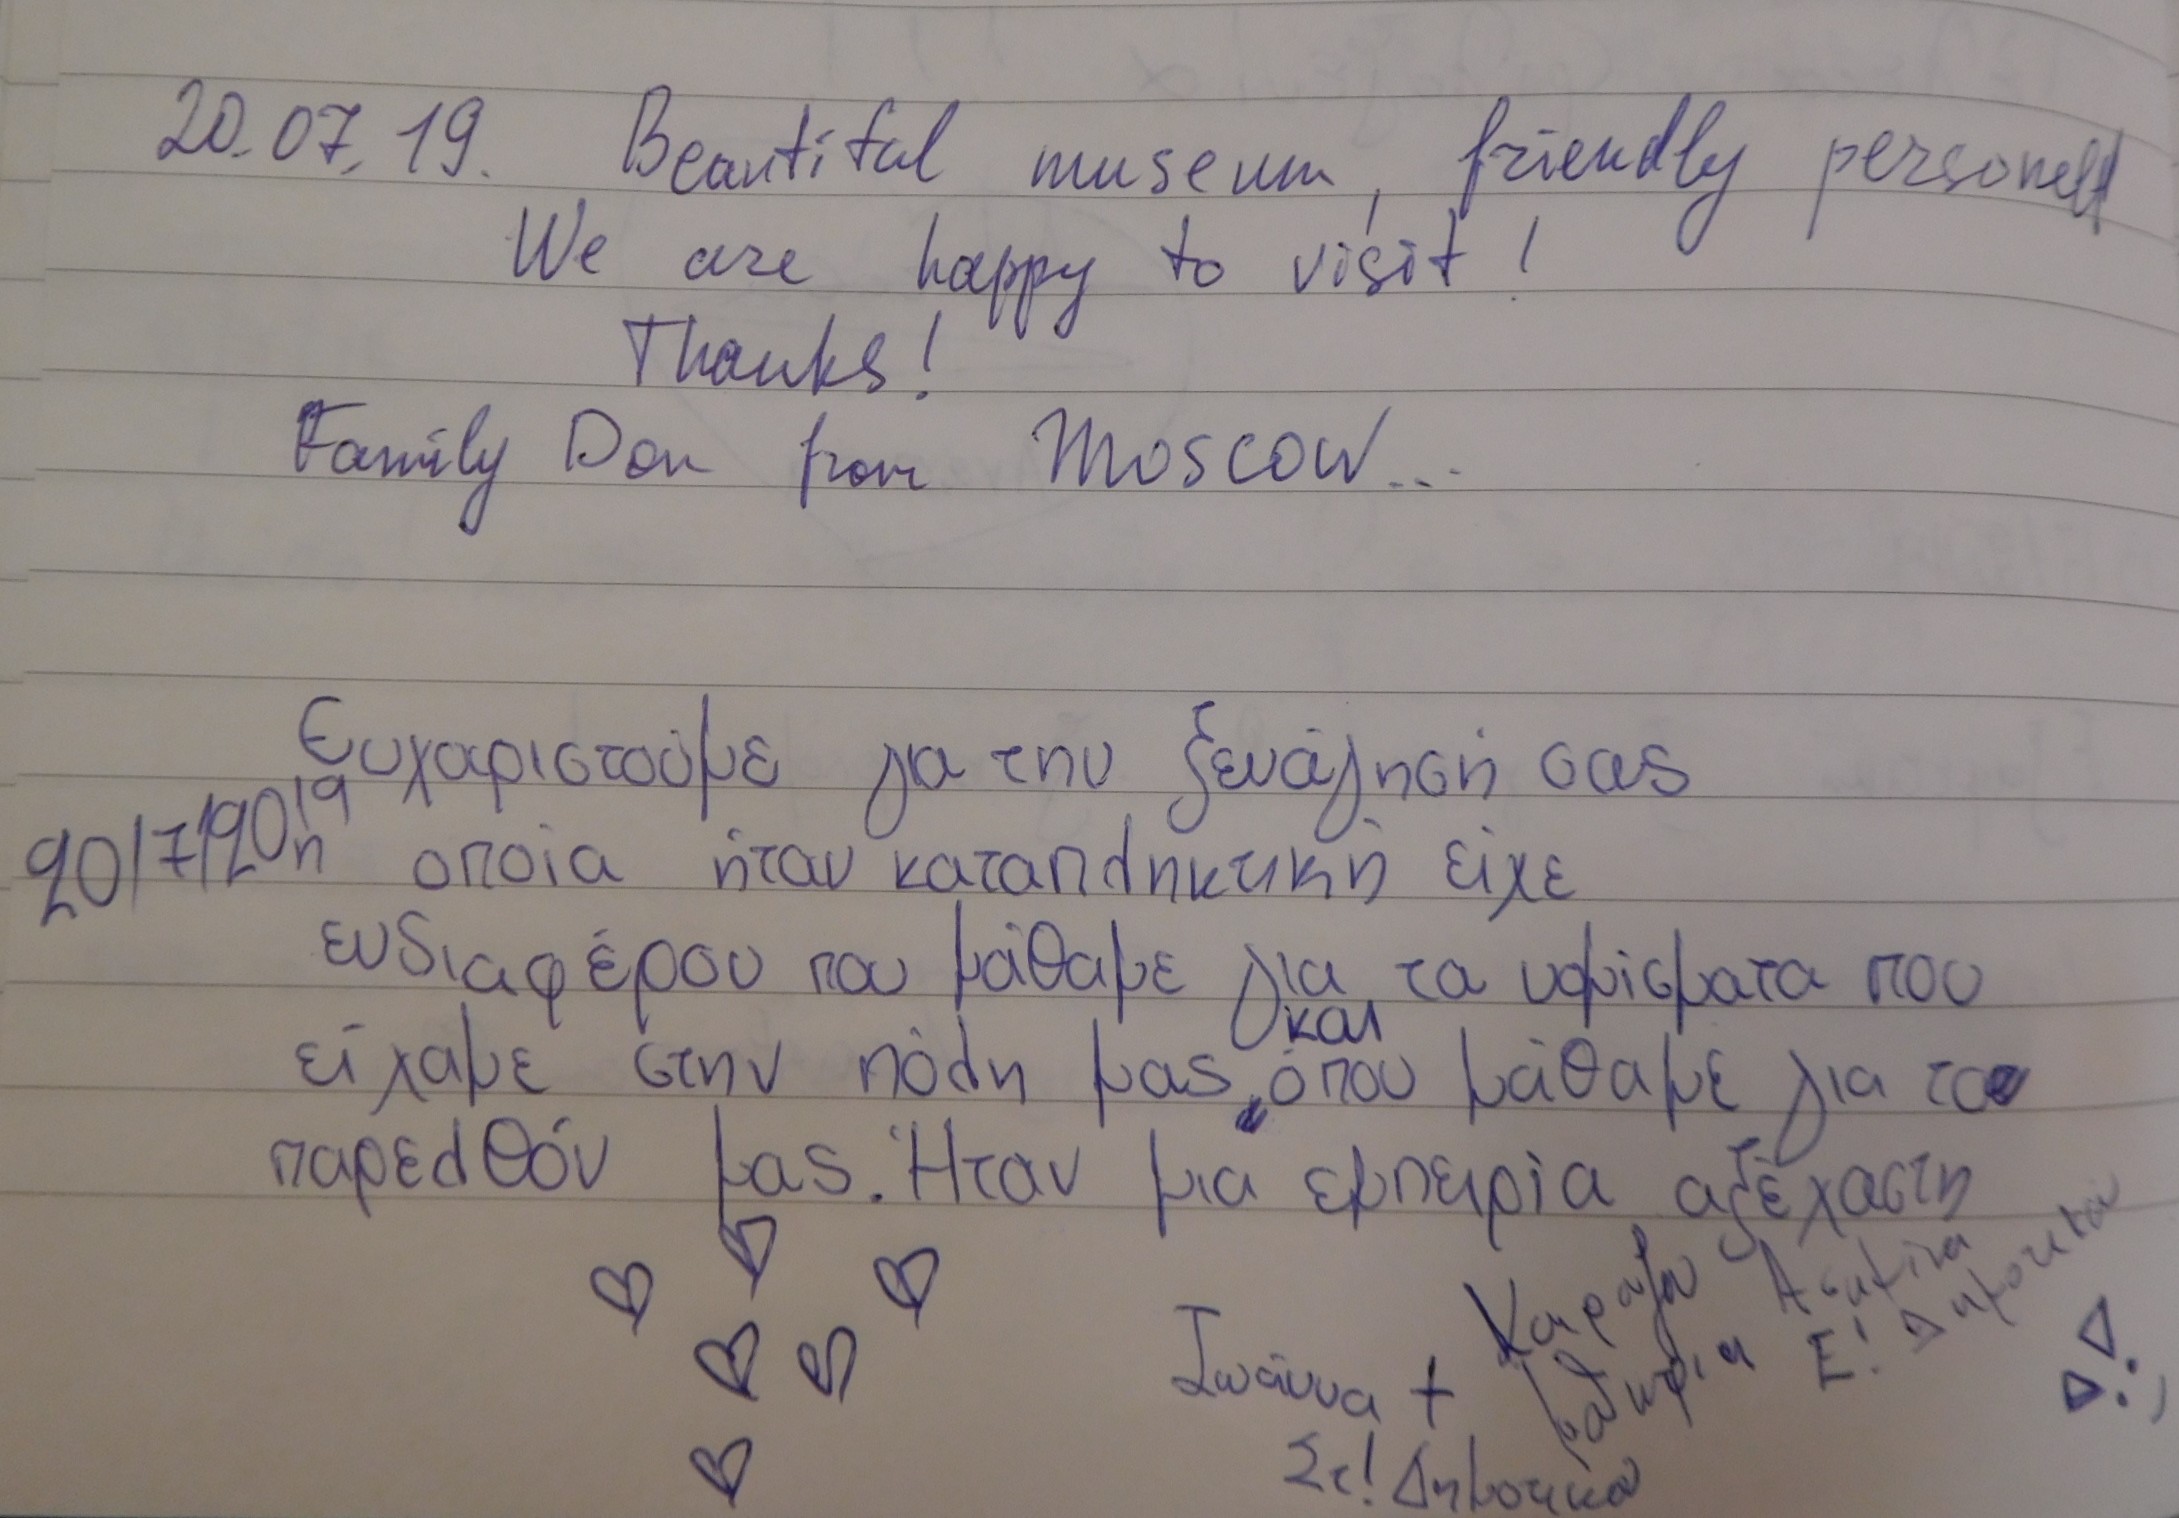 20.07.19. Beautiful museum, friendly personell
We are happy to visit!
Thanks!
Family Don from Moscow...
Ευχαριστούμε για την ξενάγησή σας
20/7/2019
η οποία ήταν καταπληκτική είχε
ενδιαφέρον που μάθαμε για τα νομίσματα που
είχαμε στην πόλη μας, και όπου μάθαμε για το
παρελθόν μας. Ήταν μια εμπειρία αξέχαστη
Ιωάννα +
Στ! Δημοτικού
Ασημίνα
Ε! Δημοτικού